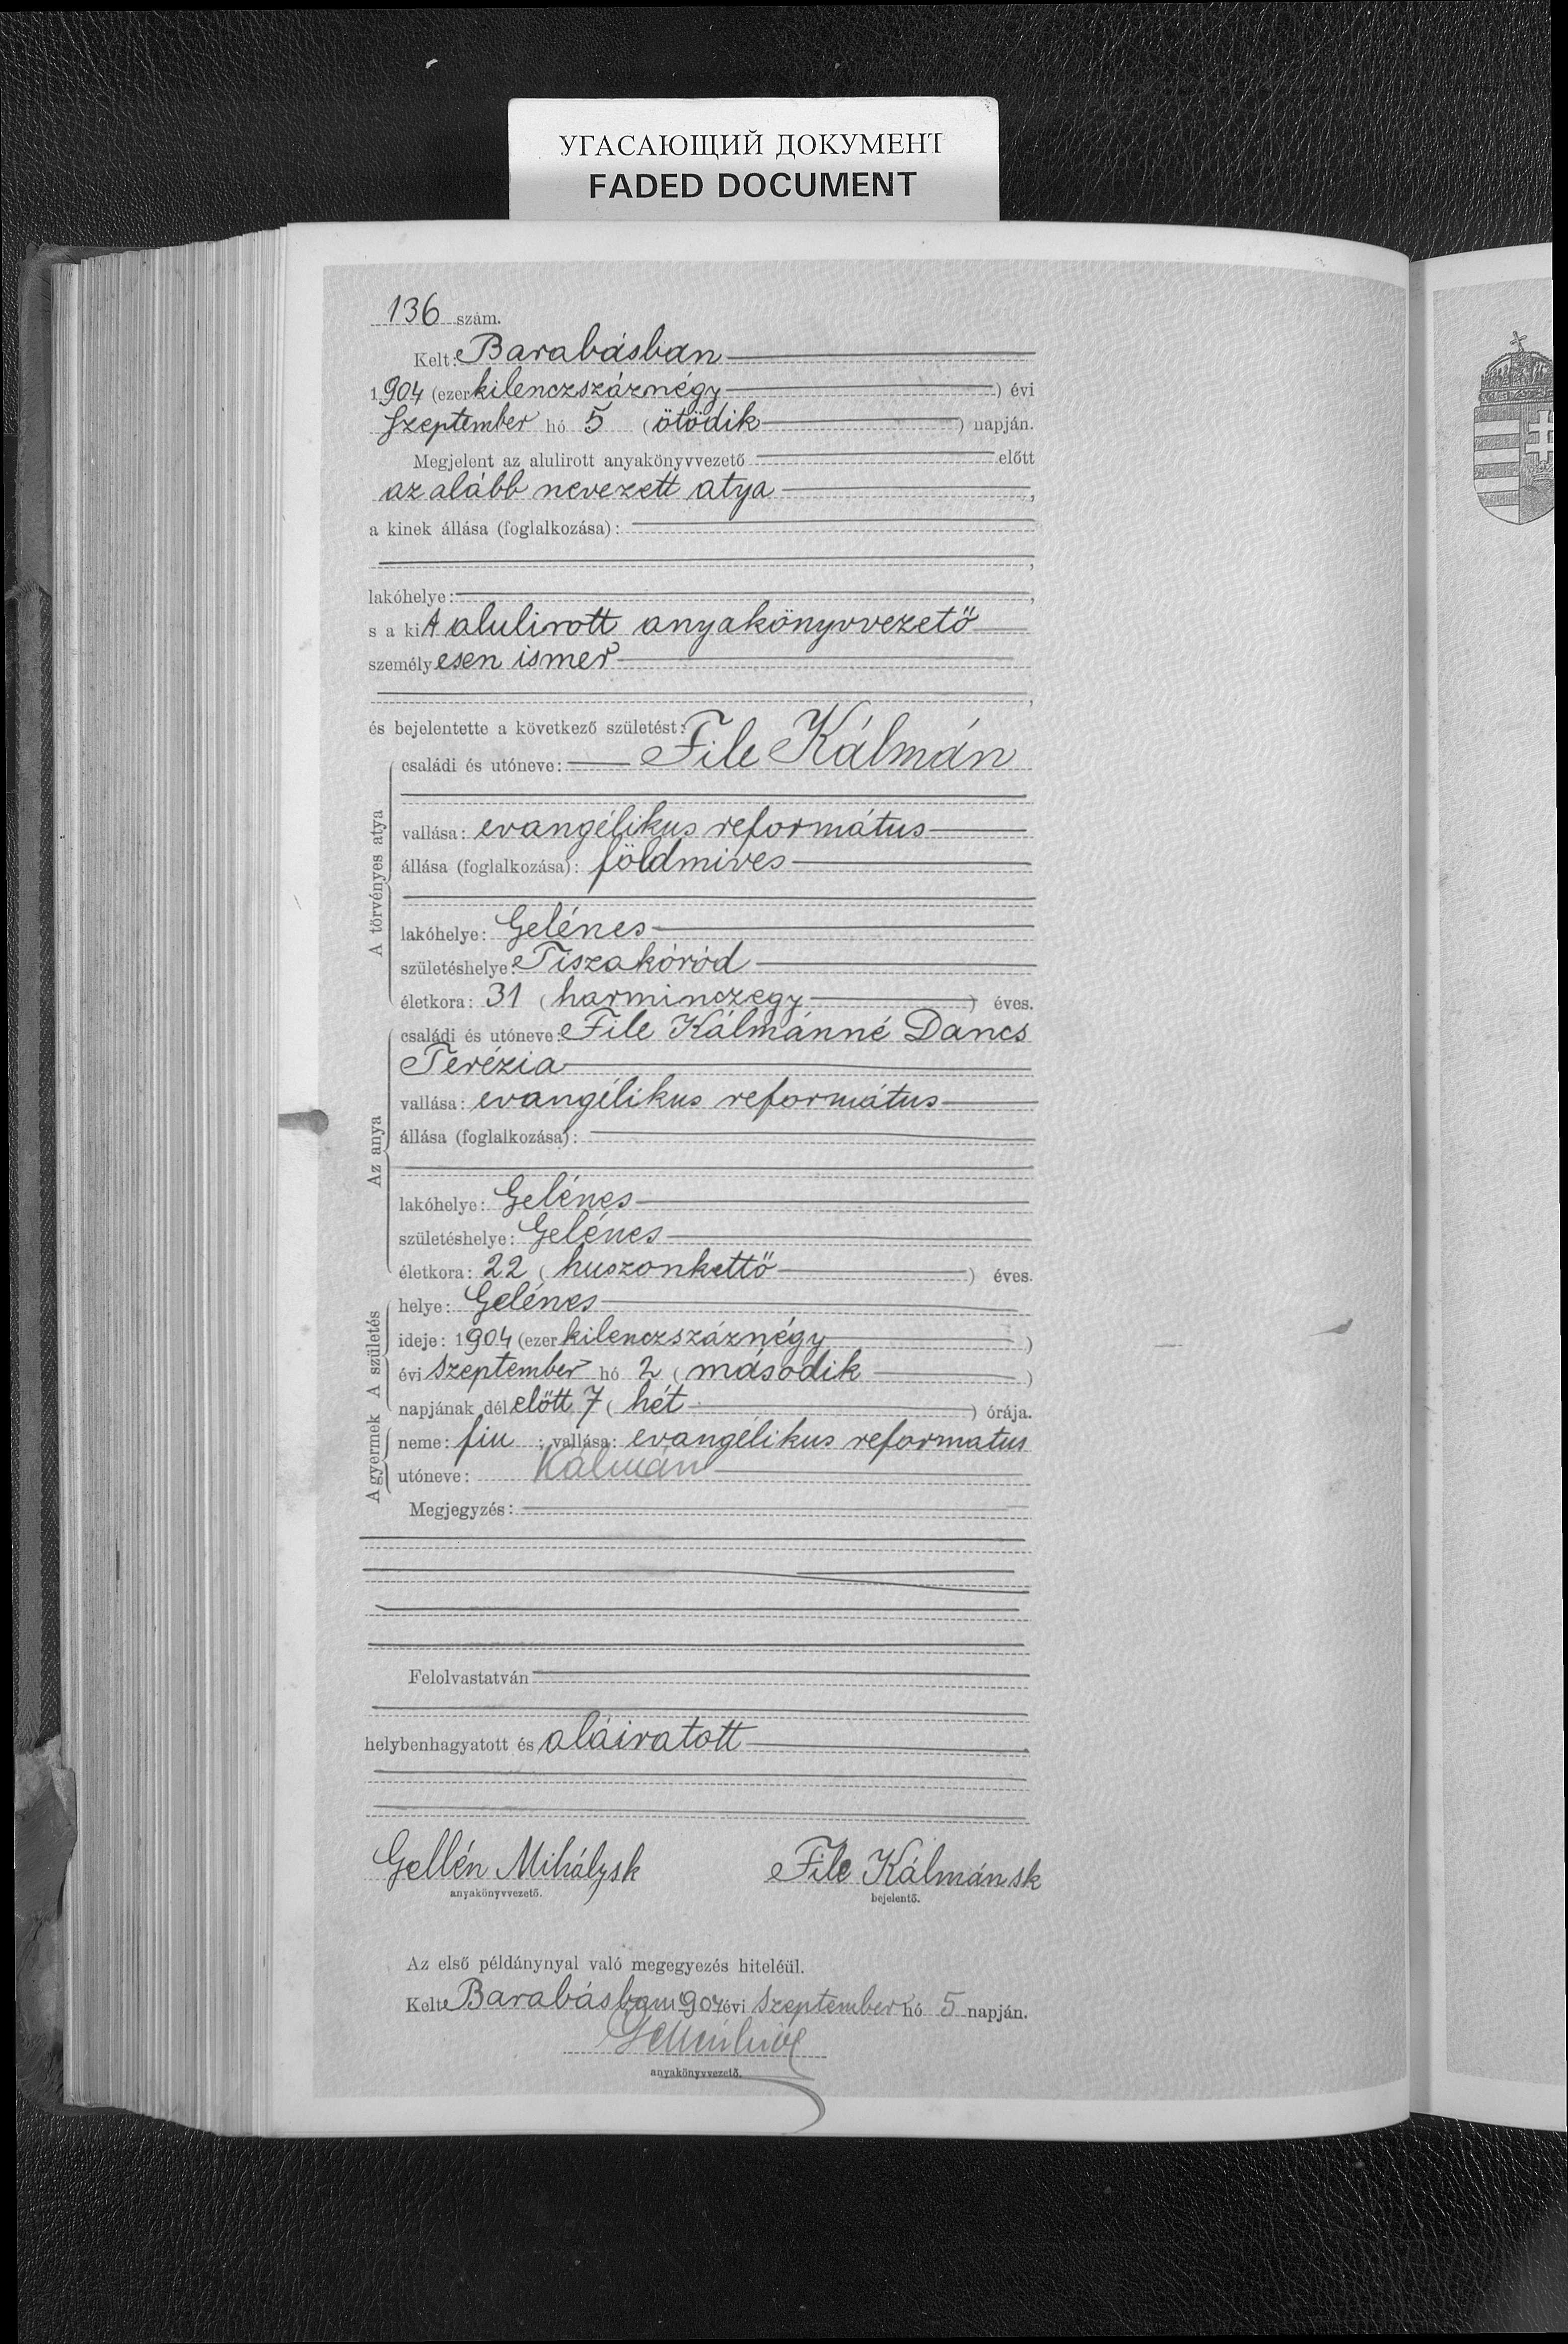 УГАСАЮЩИЙ ДОКУМЕНТ
FADED DOCUMENT
136 szám.
Kelt: Barabásban
1904 (ezer kilenczszáznégy) évi
Szeptember hó 5 (ötödik) napján.
Megjelent az alulirott anyakönyvvezető előtt
az alább nevezett atya,
a kinek állása (foglalkozása):
,
lakóhelye:,
s a kit alulirott anyakönyvvezető
személyesen ismer
,
és bejelentette a következő születést:
A törvényes atya
családi és utóneve: File Kálmán
vallása: evangélikus református
állása (foglalkozása): földmives
lakóhelye: Gelénes
születéshelye: Tiszakóród
életkora: 31 (harminczegy) éves.
Az anya
családi és utóneve: File Kálmánné Dancs
Terézia
vallása: evangélikus református
állása (foglalkozása):
lakóhelye: Gelénes
születéshelye: Gelénes
életkora: 22 (huszonkettő) éves.
A születés
helye: Gelénes
ideje: 1904 (ezer kilenczszáznégy)
évi szeptember hó 2 (második)
napjának délelőtt 7 (hét) órája.
A gyermek
neme: fiu; vallása: evangélikus reformatus
utóneve: Kálmán
Megjegyzés:
Felolvastatván
helybenhagyatott és aláiratott
Gellén Mihály sk File Kálmán sk
anyakönyvvezető. bejelentő.
Az első példánynyal való megegyezés hiteléül.
Kelt Barabásban 1904 évi szeptember hó 5 napján.
anyakönyvvezető.